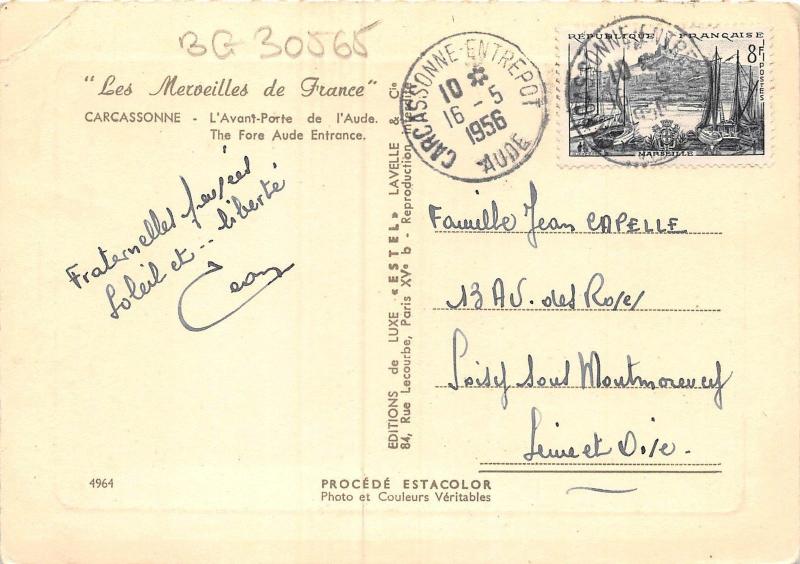 BG 30565
"Les Merveilles de France"
CARCASSONNE - L'Avant-Porte de l'Aude.
The Fore Aude Entrance.
Fraternelles pensées
Soleil et .. liberté
Jean
4964
PROCÉDÉ ESTACOLOR
Photo et Couleurs Véritables
EDITIONS de LUXE "ESTEL" LAVELLE & Cie
84, Rue Lecourbe, Paris XVe b - Reproduction interdite
CARCASSONNE-ENTREPOT
10 *
16 - 5
1956
AUDE
RÉPUBLIQUE FRANÇAISE
8F
POSTES
MARSEILLE
Famille Jean CAPELLE
13 AV. des Roses
Soisy sous Montmorency
Seine et Oise.